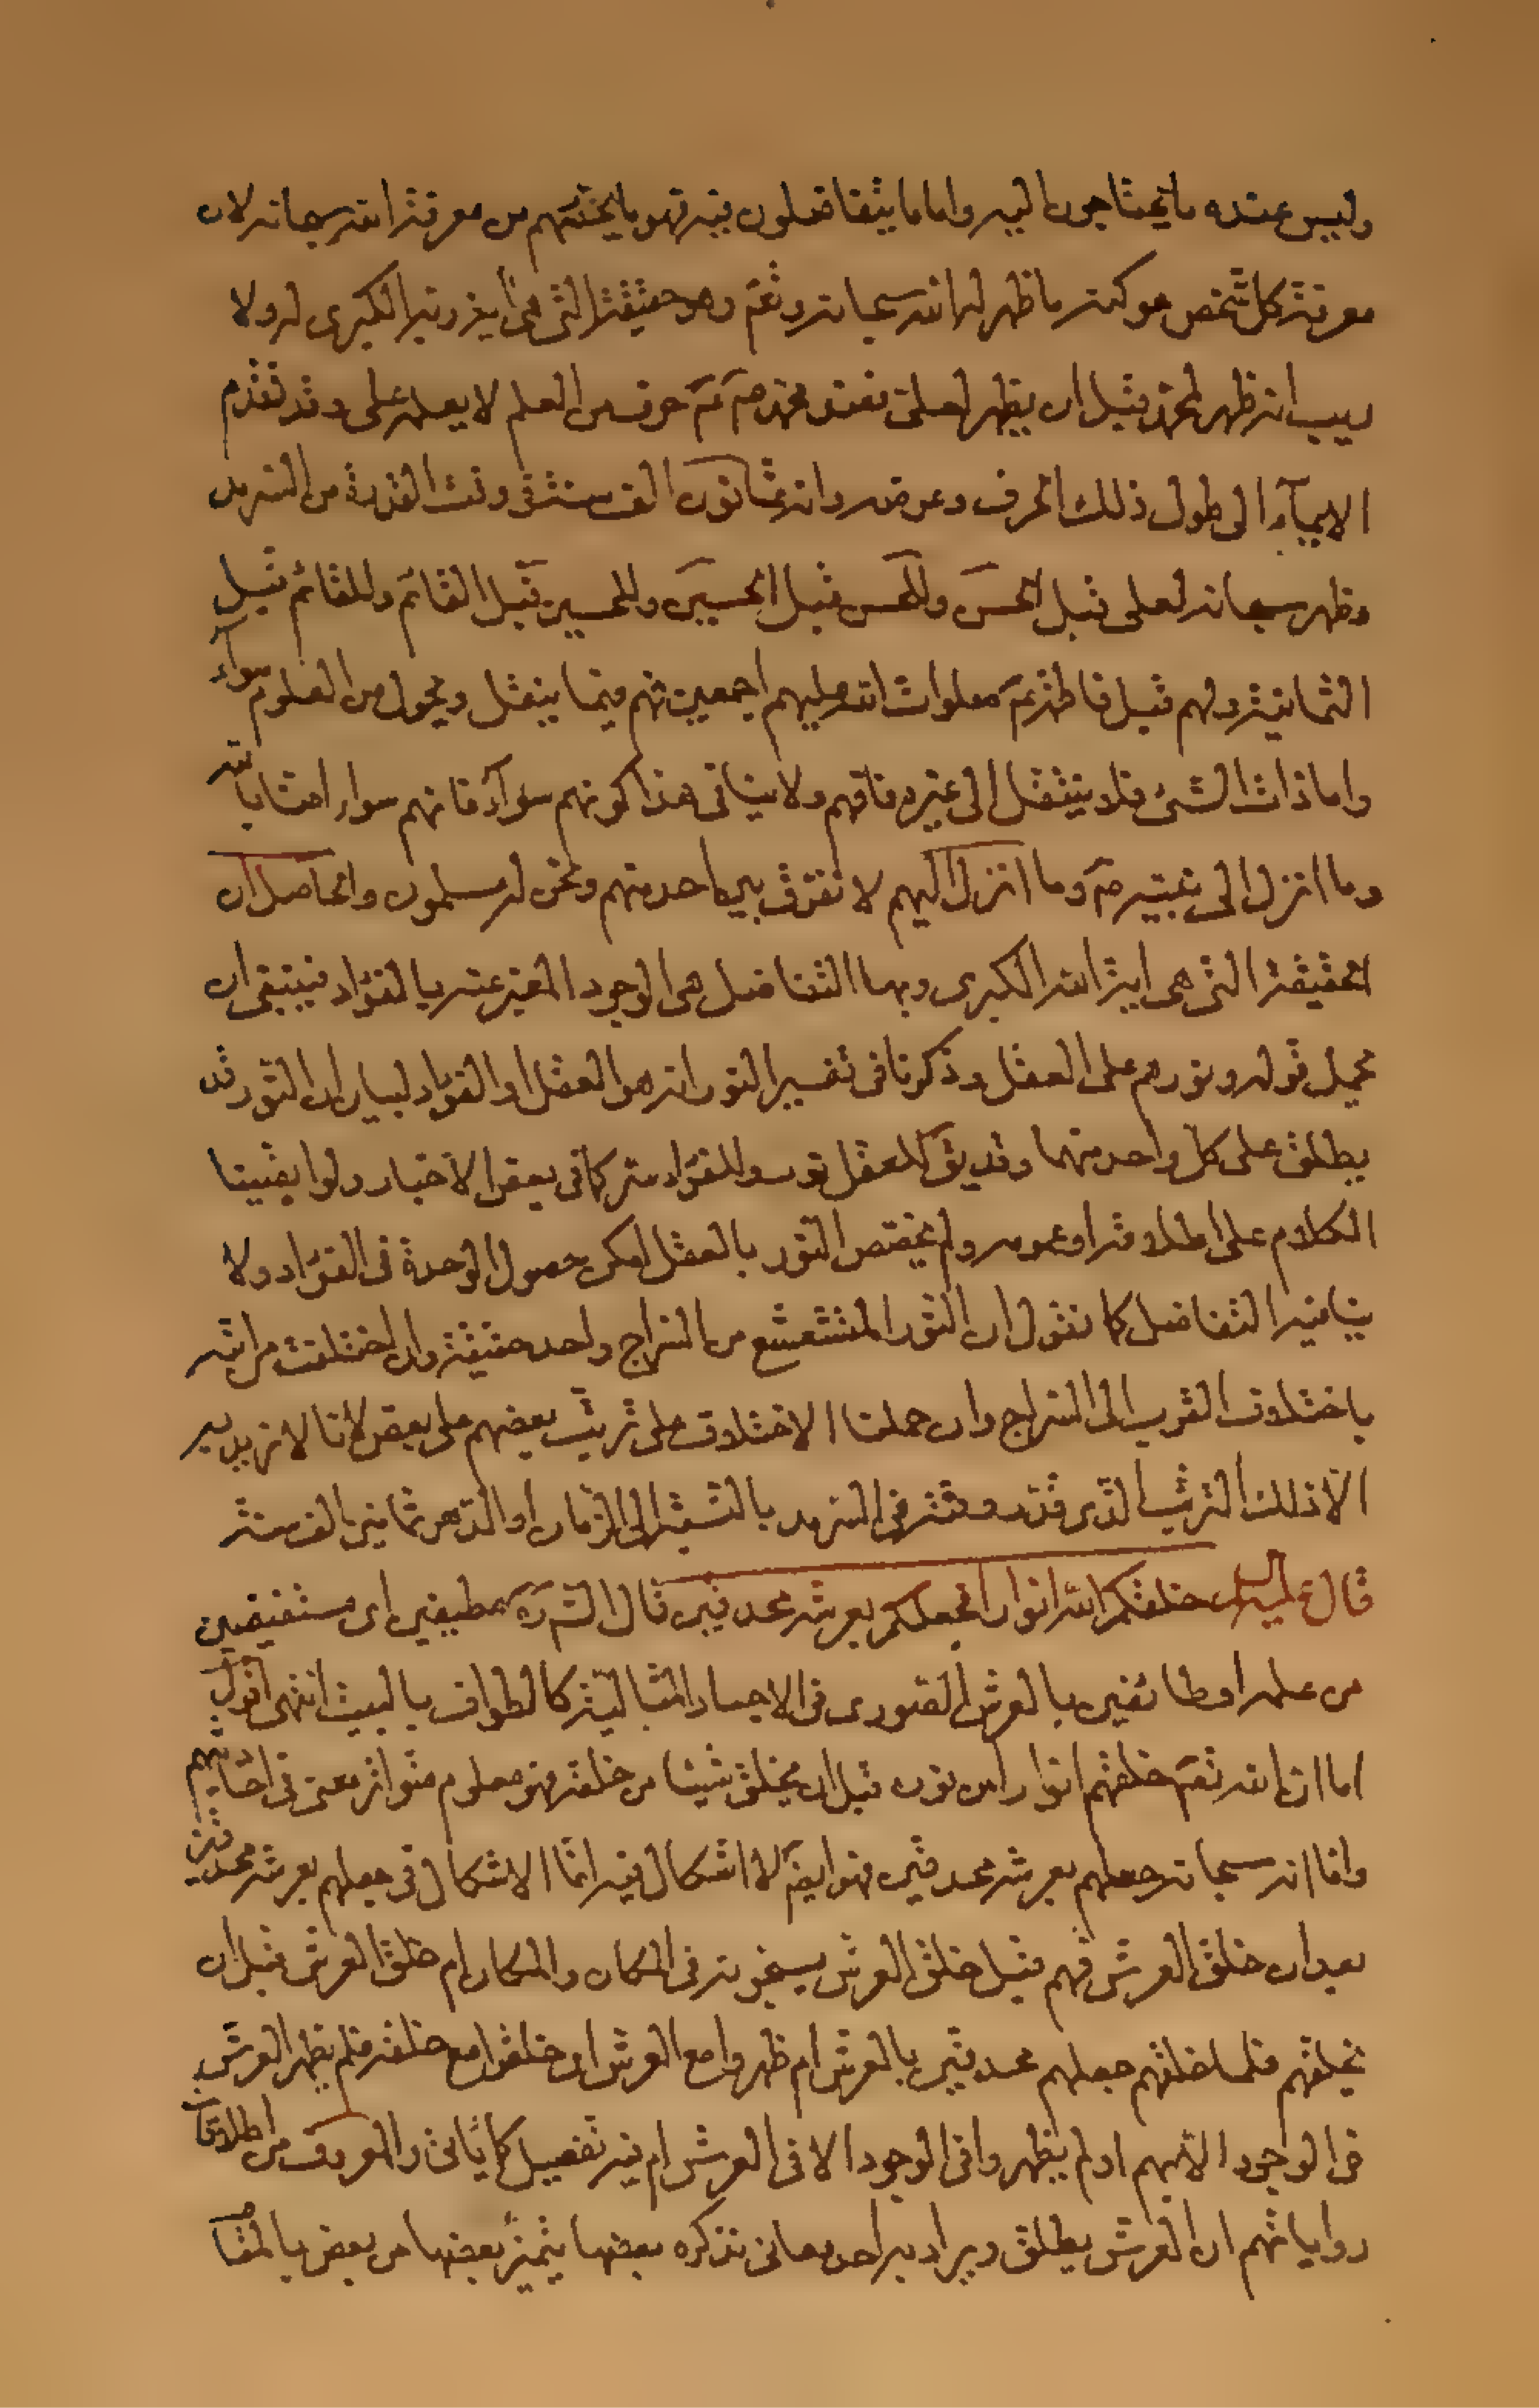 وليس عنده ما يحتاجون اليه واما ما يتفاضلون فيه فهو ما يختصهم من معرفة الله سبحانه لان
معرفة كل شخص هو كنه ما ظهر له الله سبحانه وتعم وهو حقيقته التى هى آيته الكبرى له ولا
ريب انه ظهر لمحمد قبل ان يظهر لعلى فعند محمد صم ثم حرف من العلم لا يعلمه على وقد تقدم
الايمآء الى طول ذلك الحرف وعرضه وانه ثمانون الف سنة وقت القدرة من السرمد
وظهر سبحانه لعلى قبل الحسن وللحسن قبل الحسين وللحسين قبل القائم وللقائم قبل
الثمانية ولهم قبل فاطمة ثم صلوات الله عليهم اجمعين فهم فيما ينقل ويحول من العلوم سوآء
واما ذات الشئ فلا ينتقل الى غيره فافهم ولا ينافى هذا كونهم سوآء فانهم سواء امنا بالله
وما انزل الى نبيه صم وما انزل اليهم لا نفرق بين احد منهم ونحن له مسلمون والحاصل ان
الحقيقة التى هى اية الله الكبرى وبها التفاضل هى الوجود المعبر عنه بالفؤاد فينبغى ان
يحمل قوله ونورهم على العقل وذكرنا فى تفسير النور انه هو العقل او الفؤاد لبيان ان النور قد
يطلق على كل واحد منهما وقد يق للعقل نور وللفؤاد سر كما فى بعض الاخبار ولو ابقينا
الكلام على اطلاقه او عمومه ولم يختص النور بالعقل امكن حصول الوحدة فى الفؤاد ولا
ينافيه التفاضل كما نقول ان النور المتشعشع من السراج واحد حقيقة وان اختلفت مراتبه
باختلاف القرب الى السراج وان حملنا الاختلاف على ترتيب بعضهم على بعض لأنا لا نريد به
الا ذلك الترتيب الذى قدر وقته فى السرمد بالنسبة الى الزمان او الدهر ثمانين الف سنة
قال عليه السلام خلقكم الله انوارا فجعلكم بعرشه محدقين قال الشره مطيفين اى مستفيضين
من علمه او طائفين بالعرش الصورى فى الاجساد المثالية كالطواف بالبيت انتهى اقول
اما ان الله تعم خلقهم انوارا من نوره قبل ان يخلق شيئا من خلقه فهو معلوم متواتر معنى فى احاديثهم
واما انه سبحانه جعلهم بعرشه محدقين فهو ايضم لا اشكال فيه انما الاشكال فى جعلهم بعرشه محدقين
بعد ان خلق العرش فهم قبل خلق العرش يسبحونه فى المكان والمكان ام خلق العرش قبل ان
يخلقهم فلما خلقهم جعلهم محدقين بالعرش ام ظهروا مع العرش او خلقوا مع خلقه فلم يظهر العرش
فى الوجود الا بهم او لم يظهروا فى الوجود الا فى العرش ام فيه تفصيل كما يأتى والمعروف من اطلاقات
رواياتهم ان العرش يطلق ويراد به احد معانى نذكره بعضها يتميز بعضها من بعض بالمقام